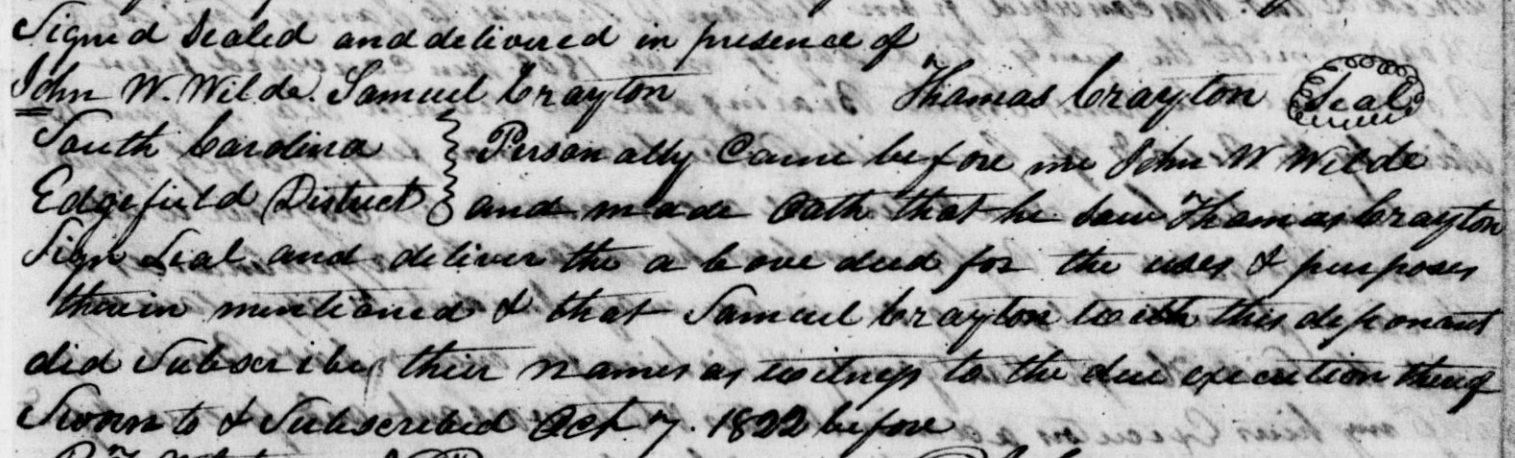 Signed Sealed and delivered in presence of
John W. Wilde. Samuel Crayton Thomas Crayton Seal
South Carolina } Personally Came before me John W Wilde
Edgefield District } and made Oath that he saw Thomas Crayton
Sign Seal and deliver the above deed for the uses & purposes
therein mentioned & that Samuel Crayton with this deponant
did Subscribe their names as witness to the due execution thereof
Sworn to & Subscribed Oct 7. 1822 before